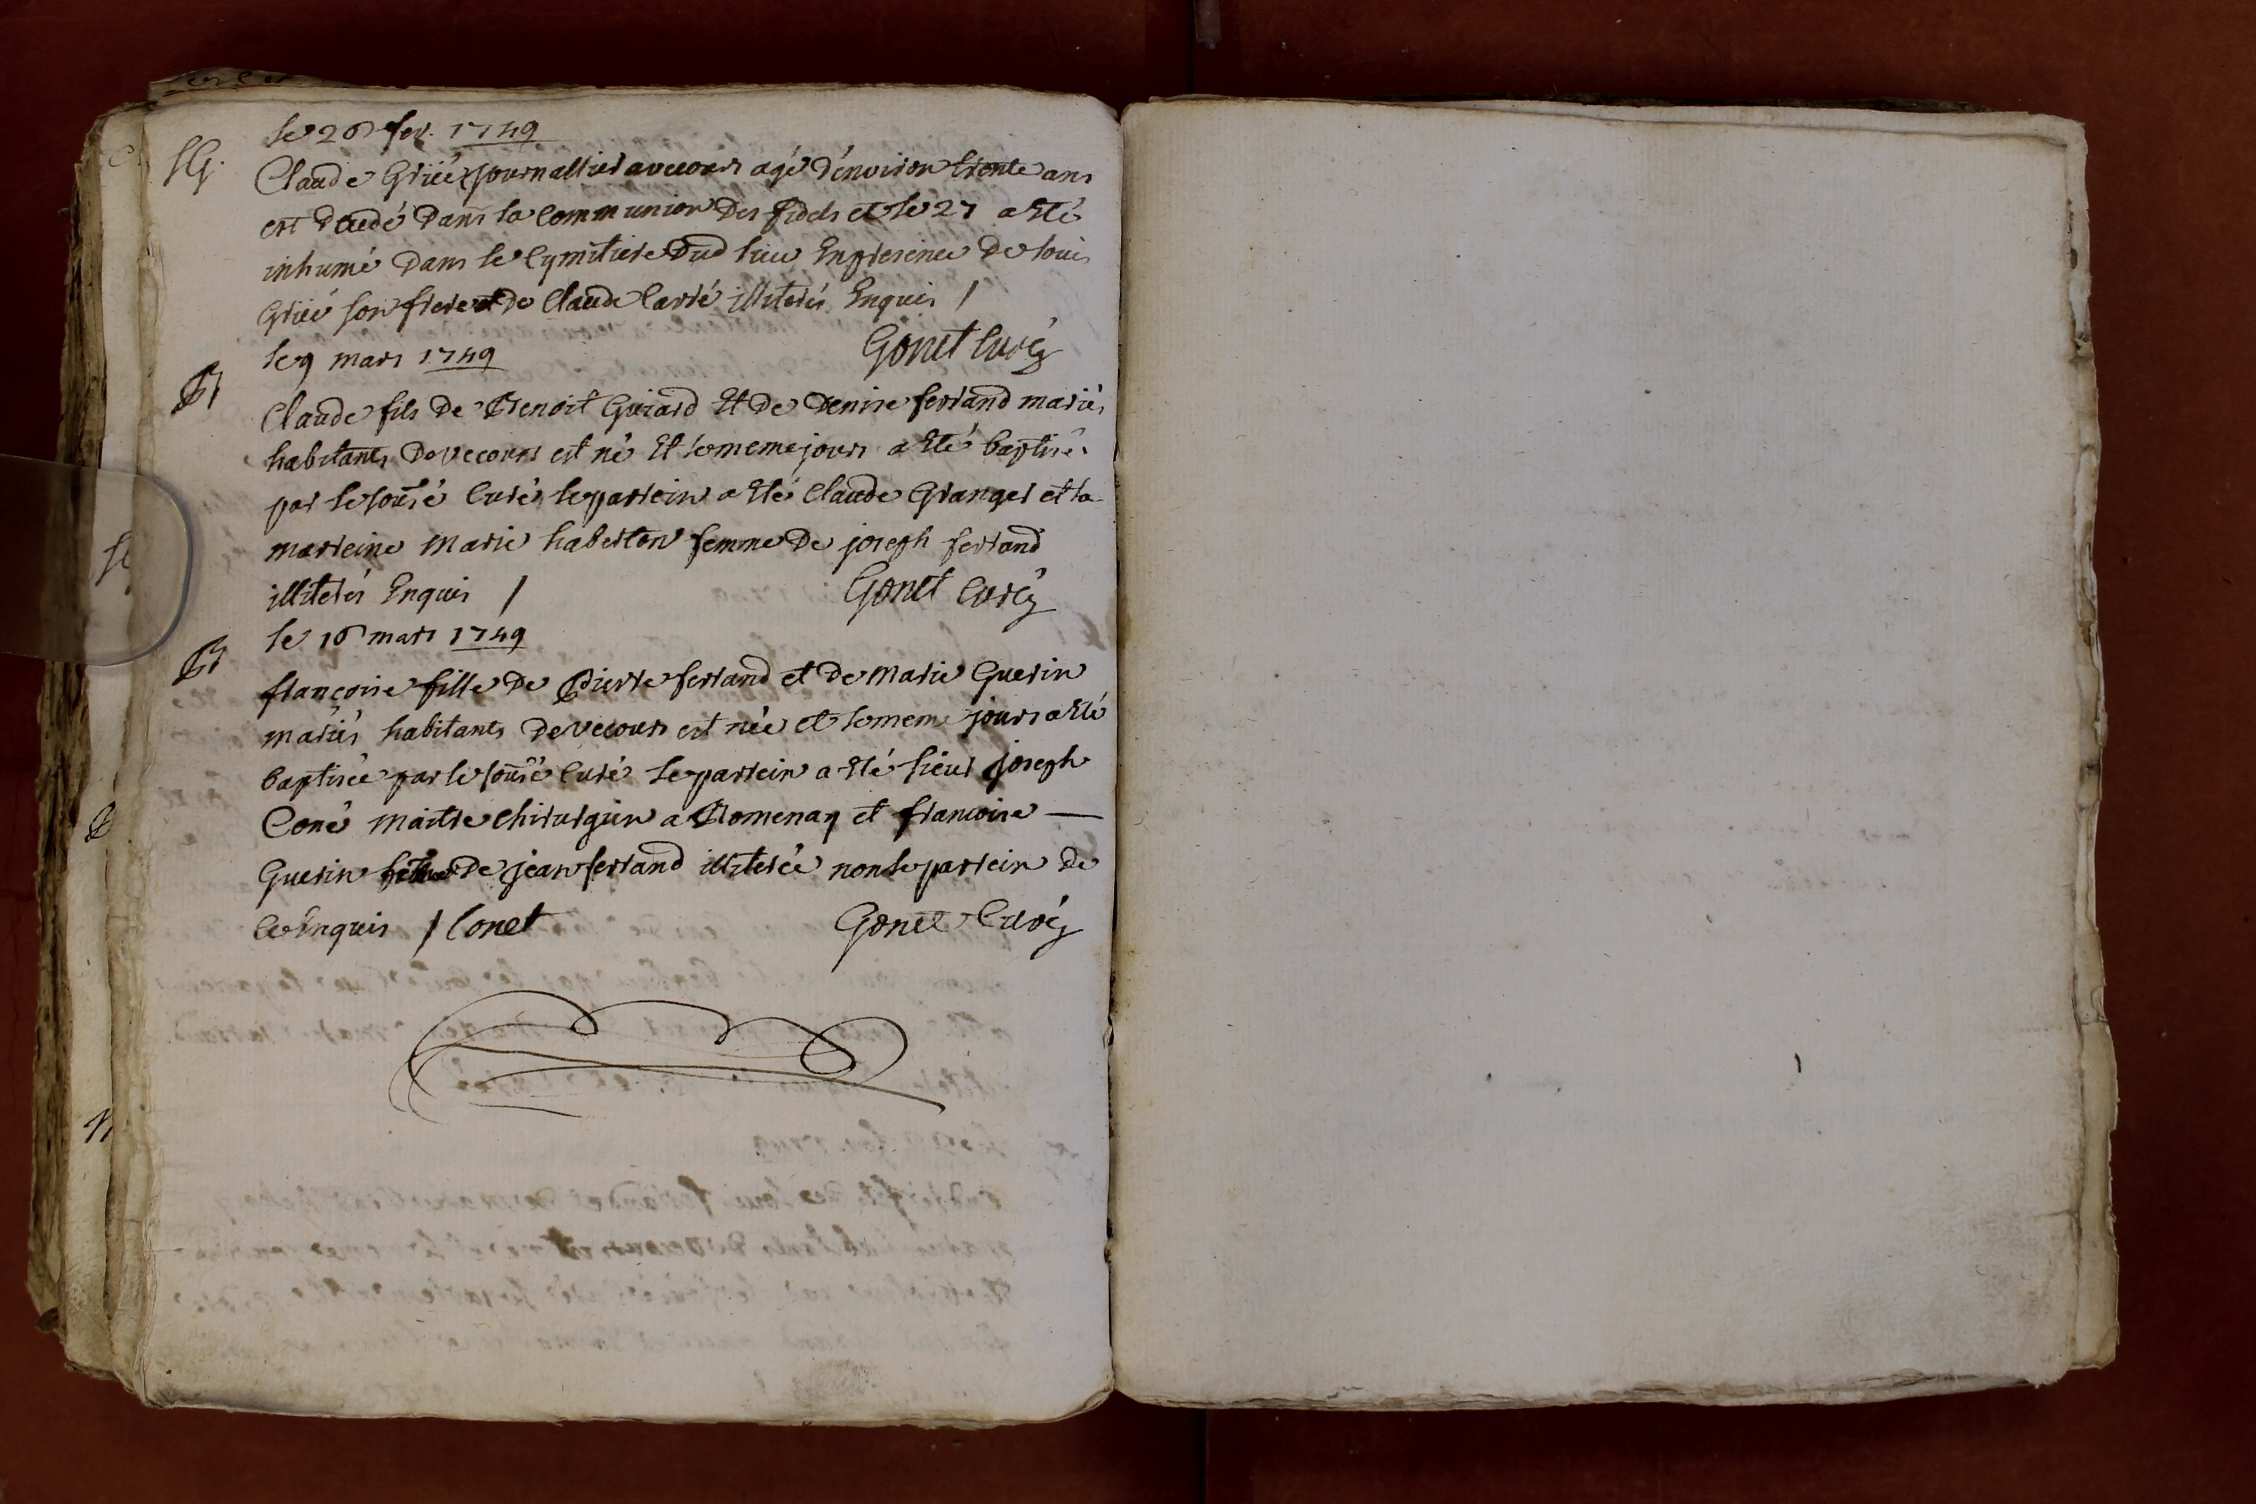 le 26 fev. 1749
SG.
Claude Griié journallier a vecours agé d'environ trente ans
est décedé dans la Communion des fidels et le 27 a Eté
inhumé dans le Cymitiere dud lieu En presence de louis
Griié son frere et de Claude Carré illiterés Enquis /
Gonet Curé
le 9 mars 1749
B
Claude fils de Benoit Guirard Et de Denise ferrand mariés
habitants de vecours est né Et le meme jours a Eté baptisé
par le sousé Curé le parrein a Eté Claude Granger et la
marreine Marie haberton femme de joseph ferrand
illiterés Enquis /
Gonet Curé
le 16 mars 1749
B
françoise fille de Pierre ferrand et de Marie Guerin
mariés habitants de vecours est née et le mem jours a Eté
baptisée par le sousé Curé le parrein a Eté sieur joseph
Coné maitre chirurgien a Romenay et francoise —
Guerin de jean ferrand illiterée non le parrein de
ce Enquis / Conet
Gonet Curé